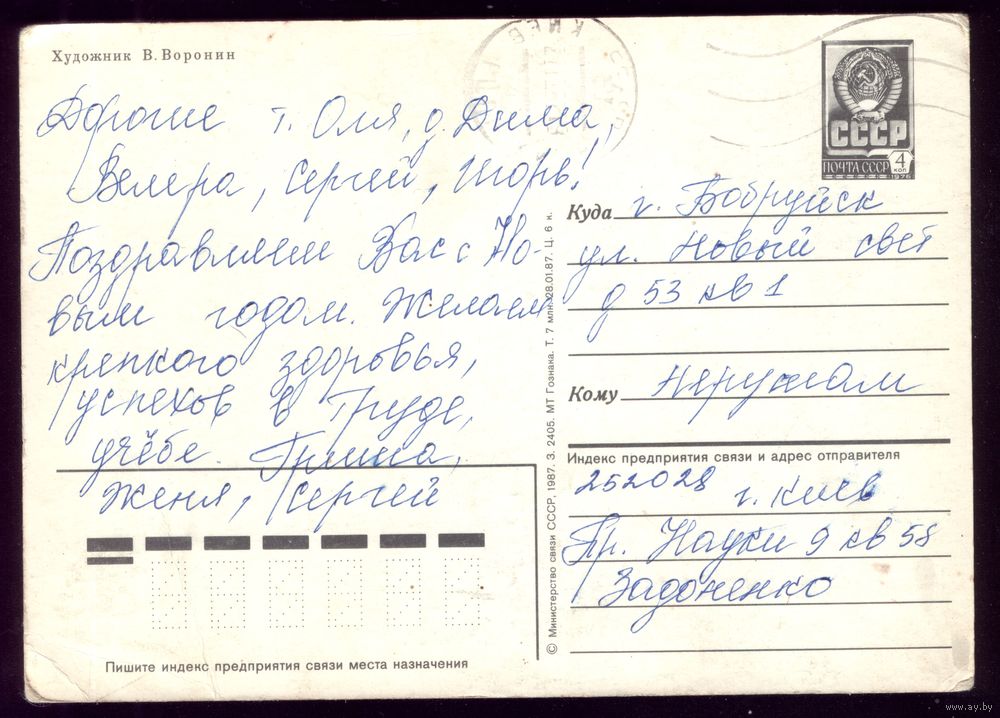 Художник В. Воронин
Дорогие т. Оля, д. Дима,
Валера, Сергей, Игорь!
Поздравляем Вас с Но-
вым годом. Желаем
крепкого здоровья,
успехов в труде,
учёбе. Гриша,
Женя, Сергей
Пишите индекс предприятия связи места назначения
© Министерство связи СССР, 1987. З. 2405. МТ Гознака. Т. 7 млн. 28.01.87. Ц. 6 к.
КИЕВ
СССР
ПОЧТА СССР 4 коп
1976
Куда г. Бобруйск
ул. Новый свет
д 53 кв 1
Кому
Индекс предприятия связи и адрес отправителя
252028 г. Киев
Пр. Науки 9 кв 58
Задоненко
www.ay.by